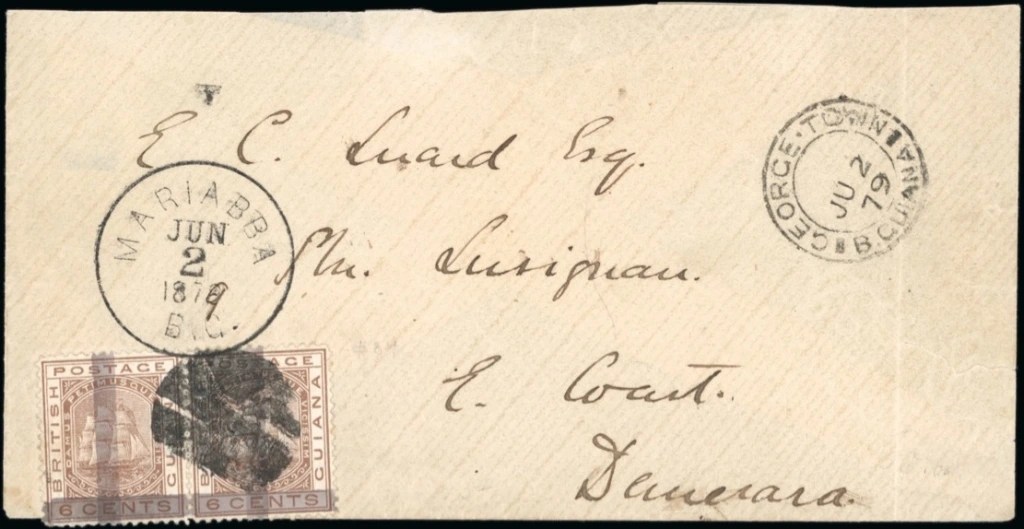 E C. Luard Esq.
GEORGE·TOWN
B.GUIANA
JU 2
79
MARIABBA
JUN
2
1879
B.G.
Pln. Lusignan.
E. Coast.
Demerara.
POSTAGE
BRITISH
GUIANA
DAMUS PETIMUSQUE
6 CENTS
POSTAGE
GUIANA
6 CENTS